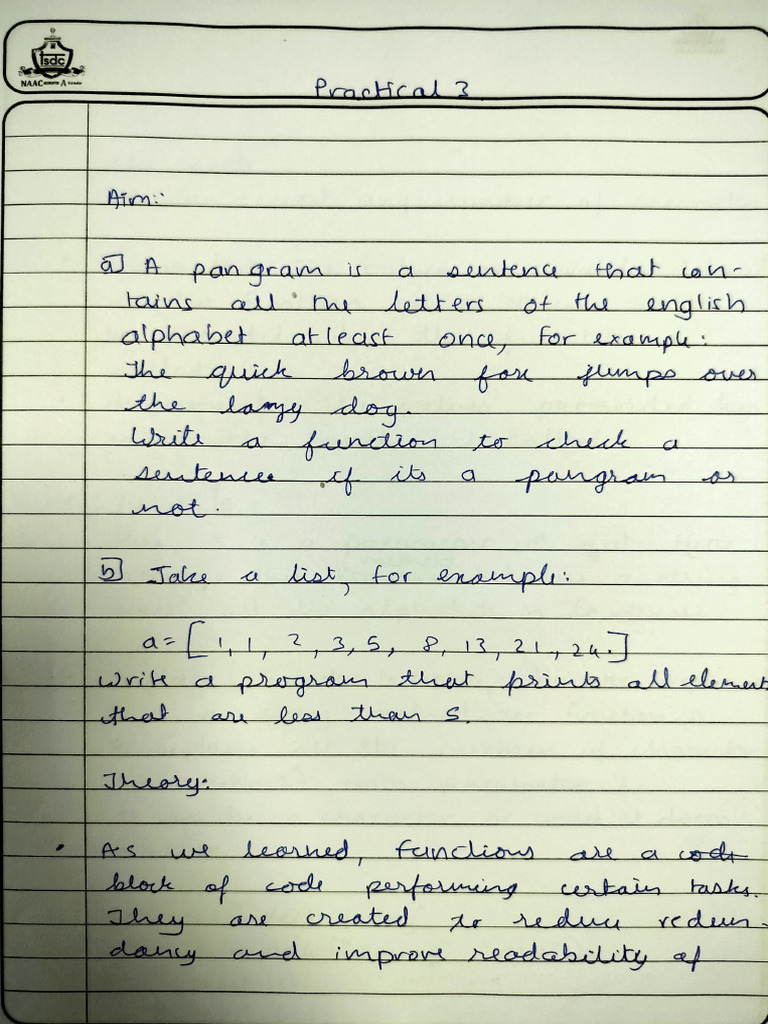 isdc
NAAC A
Practical 3
Aim:
a) A pangram is a sentence that con-
tains all the letters of the english
alphabet atleast once, for example:
The quick brown fox jumps over
the lazy dog.
Write a function to check a
sentence if its a pangram or
not.
b) Take a list, for example:
a = [1, 1, 2, 3, 5, 8, 13, 21, 24.]
Write a program that prints all element
that are less than 5.
Theory:
• As we learned, functions are a code
block of code performing certain tasks.
They are created to reduce redun-
dancy and improve readability of